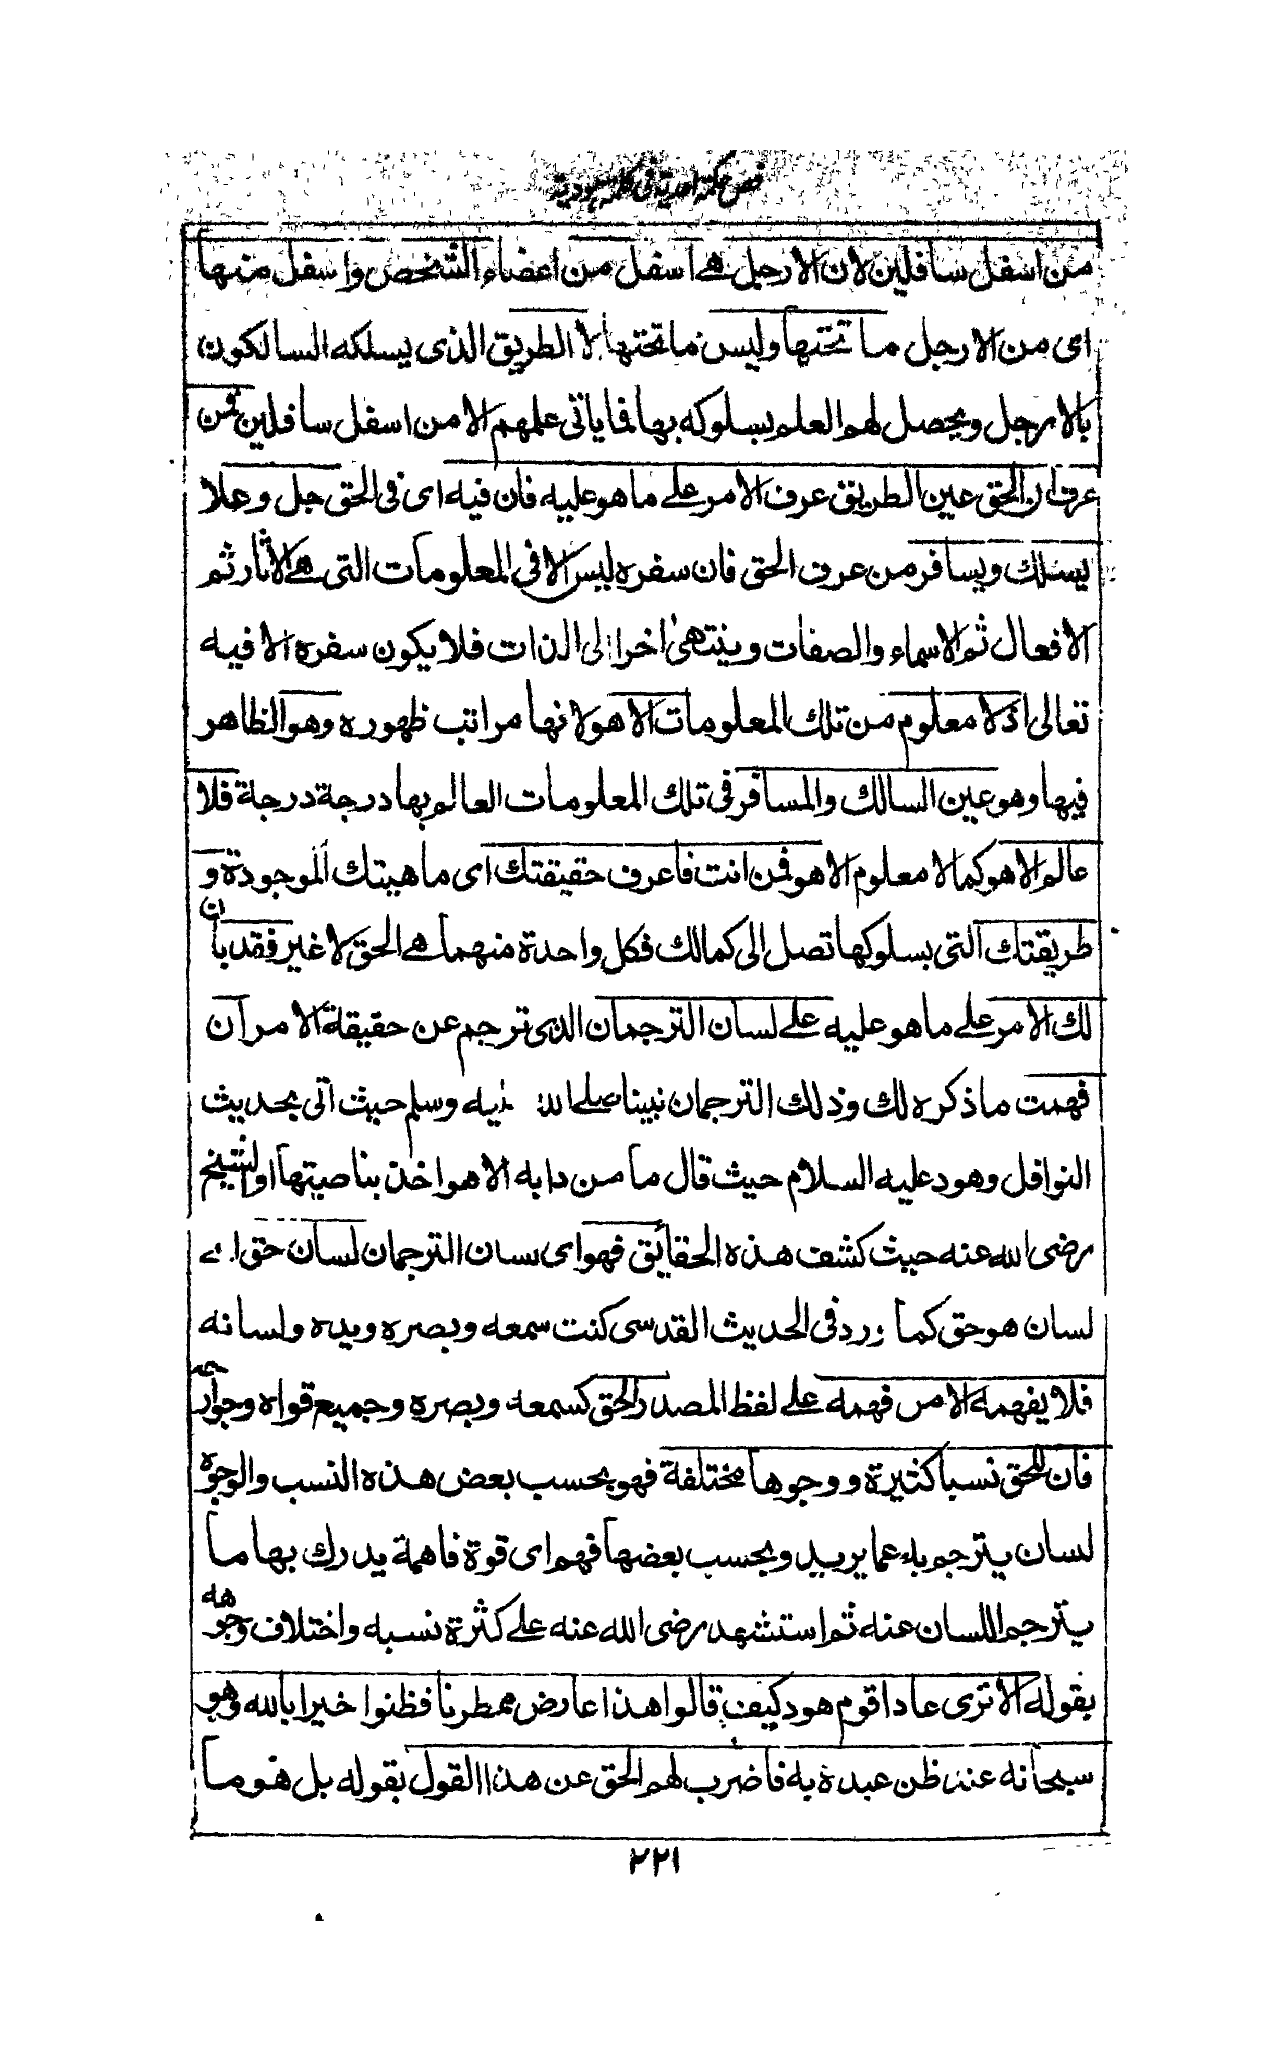 فص حكمة احدية فى كلمة هودية
من اسفل سافلين لان الارجل هے اسفل من اعضاء الشخص واسفل منها
اى من الارجل ما تحتها وليس ما تحتها الا الطريق الذى يسلكه السالكون
بالارجل ويحصل لهم العلم بسلوكه بها فما ياتى علمهم الا من اسفل سافلين فمن
عرف ان الحق عين الطريق عرف الامر على ما هو عليه فان فيه اى فى الحق جل وعلا
يسلك ويسافر من عرف الحق فان سفره ليس الا فى المعلومات التى هے الاثار ثم
الافعال ثم الاسماء والصفات وينتهى اخرا الى الذات فلا يكون سفره الا فيه
تعالى اذ لا معلوم من تلك المعلومات الا هو لانها مراتب ظهوره وهو الظاهر
فيها وهو عين السالك والمسافر فى تلك المعلومات العالم بها درجة درجة فلا
عالم الا هو كما لا معلوم الا هو فمن انت فاعرف حقيقتك اى ماهيتك الموجودة و
طريقتك التى بسلوكها تصل الى كمالك فكل واحدة منهما هے الحق لا غير فقد بان
لك الامر على ما هو عليه على لسان الترجمان الذى ترجم عن حقيقة الامر ان
فهمت ما ذكره لك وذلك الترجمان نبينا صلى الله عليه وسلم حيث اتى بحديث
النوافل وهود عليه السلام حيث قال ما من دابه الا هو اخذ بناصيتها او الشيخ
رضى الله عنه حيث كشف هذه الحقائق فهو اى لسان الترجمان لسان حق اى
لسان هو حق كما ورد فى الحديث القدسى كنت سمعه وبصره ويده ولسانه
فلا يفهمه الا من فهمه على لفظ المصدر الحق كسمعه وبصره وجميع قواه وجوارحه
فان للحق نسبا كثيرة ووجوها مختلفة فهو بحسب بعض هذه النسب والوجوه
لسان يترجم به عما يريد وبحسب بعضها فهم اى قوة فاهمة يدرك بها ما
يترجم اللسان عنه ثم استشهد رضى الله عنه على كثرة نسبه واختلاف وجوهه
بقوله الا ترى عادا قوم هود كيف قالوا هذا عارض ممطرنا فظنوا خيرا بالله وهو
سبحانه عند ظن عبده به فاضرب لهم الحق عن هذا القول بقوله بل هو ما
٢٢١